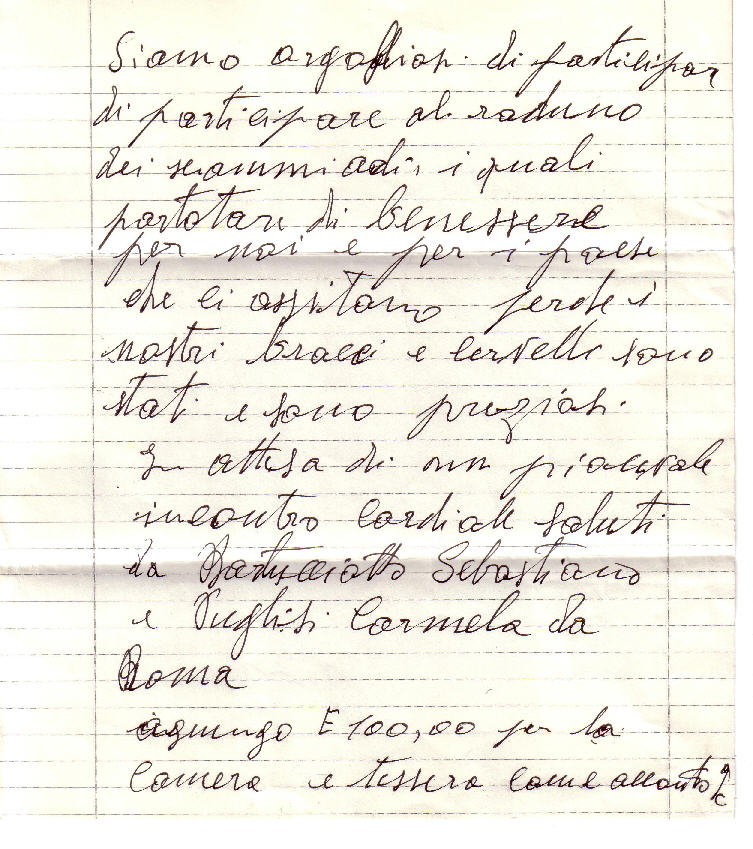 Siamo orgogliosi di partecipar
di participare al raduno
dei scammiadi, i quali
portatare di benessere
per noi e per i paese
che ci ospitano perche i
nostri bracci e cervelli sono
stati e sono preziosi.
In attesa di un piacevole
incontro cordiale saluti
da Bartucciotto Sebastiano
e Puglisi Carmela da
Roma
agiungo E 100,00 per la
camera e tessera come acconto